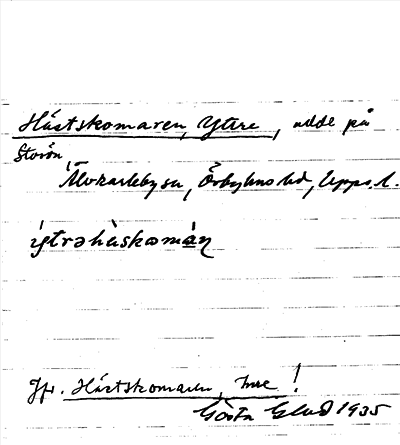 Hästskomaren, Yttre, udde på
Storön,
Älvkarleby sn, Örbyhus hd, Upps. l.
ýtrəhàskomáɳ
Jfr. Hästskomaren, Inre!
Gösta 1935